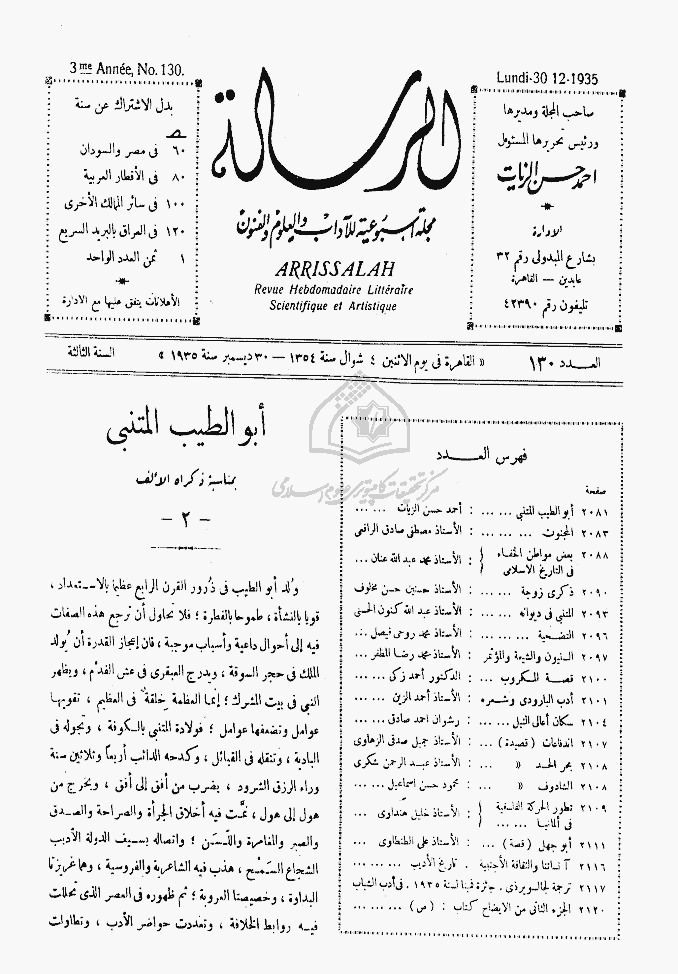 3me Année, No. 130.
بدل الاشتراك عن سنة
ص
٦٠ فى مصر والسودان
٨٠ فى الأقطار العربية
١٠٠ فى سائر الممالك الأخرى
١٢٠ فى العراق بالبريد السريع
١ ثمن العدد الواحد
الاعلانات يتفق عليها مع الادارة
الرسالة
مجلة أسبوعية للآداب والعلوم والفنون
ARRISSALAH
Revue Hebdomadaire Littéraire
Scientifique et Artistique
Lundi-30 12-1935
صاحب المجلة ومديرها
ورئيس تحريرها المسئول
احمد حسن الزيات
الادارة
بشارع المبدولى رقم ٣٢
عابدين — القاهرة
تليفون رقم ٤٢٣٩٠
العـدد ١٣٠ « القاهرة فى يوم الاثنين ٤ شوال سنة ١٣٥٤ — ٣٠ ديسمبر سنة ١٩٣٥ » السنة الثالثة
فهرس العـدد
صفحة
٢٠٨١ أبو الطيب المتنبى ... ... : أحمد حسن الزيات ... ...
٢٠٨٣ المجنون ... ... ... : الأستاذ مصطفى صادق الرافعى
٢٠٨٨ بعض مواطن الخفاء فى التاريخ الاسلامى } : الأستاذ محمد عبد الله عنان ...
٢٠٩٠ ذكرى زوجة ... ... : الأستاذ حسنين حسن مخلوف
٢٠٩٣ المتنبى فى ديوانه ... ... : الأستاذ عبد الله كنون الحسنى
٢٠٩٦ التضحية ... ... ... : الأستاذ محمد روحى فيصل ...
٢٠٩٧ السنيون والشيعة والمؤتمر : الأستاذ محمد رضا المظفر ...
٢١٠٠ قصة المكروب ... ... : الدكتور أحمد زكى ... ...
٢١٠١ أدب البارودى وشعره : الأستاذ أحمد الزين ... ...
٢١٠٤ سكان أعالى النيل ... ... : رشوان احمد صادق ... ...
٢١٠٧ اندفاعات (قصيدة) ... : الأستاذ جميل صدقى الزهاوى
٢١٠٨ بحر الحد « ... : الأستاذ عبد الرحمن شكرى
٢١٠٨ الشادوف « ... : محمود حسن اسماعيل ... ...
٢١٠٩ تطور الحركة الفلسفية فى ألمانيا ... ... } : الأستاذ خليل هنداوى ...
٢١١١ أبو جهل (قصة) ... : الأستاذ على الطنطاوى ...
٢١١٦ آنساتنا والثقافة الأجنبية . تاريخ الأديب ... ... ...
٢١١٧ ترجمة لجالسورذى . جائزة فمينا لسنة ١٩٣٥ . فى أدب الشباب
٢١٢٠ الجزء الثانى من الايضاح كتاب : (ص) ... ... ...
أبو الطيب المتنبى
بمناسبة ذكراه الألف
— ٢ —
وُلد أبو الطيب فى ذُرور القرن الرابع عظيما بالاستعداد ،
قويا بالنشأة ، طموحا بالفطرة ؛ فلا تحاول أن ترجع هذه الصفات
فيه إلى أحوال داعية وأسباب موجبة ، فان إعجاز القدرة أن يُولد
الملك فى حجر السوقة ، ويدرج العبقرى فى عش الفدْم ، ويظهر
النبى فى بيت المشرك ؛ إنما العظمة خلقة فى العظيم ، تقويها
عوامل وتضعفها عوامل ؛ فولادة المتنبى بالكوفة ، وتجوله فى
البادية ، وتنقله فى القبائل ، وكدحه الدائب أربعاً وثلاثين سنة
وراء الرزق الشرود ، يضرب من أفق إلى أفق ، ويخرج من
هول إلى هول ، نمَّت فيه أخلاق الجرأة والصراحة والصدق
والصبر والمغامرة واللَّسَن ؛ واتصاله بسيف الدولة الأديب
الشجاع السَّمْح ، هذب فيه الشاعرية والفروسية ، وهما غريزتا
البداوة ، وخصيصتا العروبة ؛ ثم ظهوره فى العصر الذى تحللت
فيه روابط الخلافة ، وتعددت حواضر الأدب ، وتطاولت
مركز تحقيقات كامپيوترى علوم اسلامى